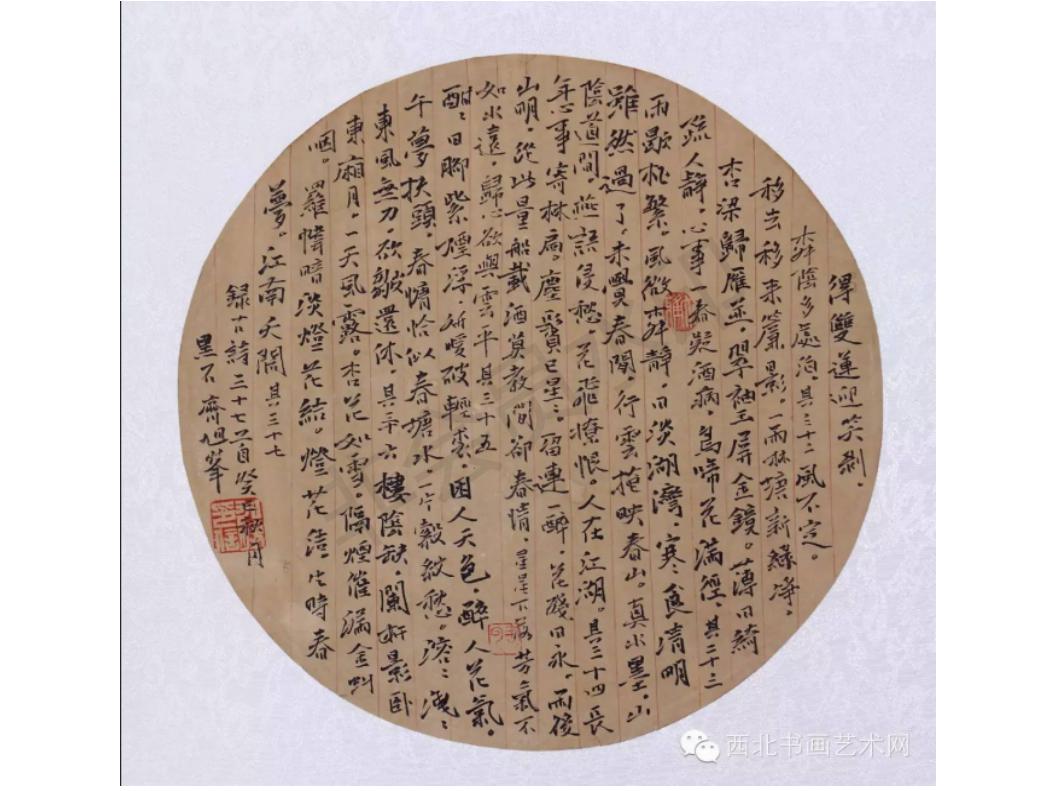 得雙蓮迎笑剩。
柳陰多處泊。其三十二 風不定。
移去移来簾影。一雨林塘新緑净。
杏梁歸雁並。翠袖玉屏金鏡。薄日綺
疏人静。心事一春疑酒病。鳥啼花满徑。其二十三
雨歇桃繁。風微柳静。日淡湖灣。寒食清明
雖然過了。未覺春閒。行雲掩映春山。真水墨。山
陰道間。燕語侵愁。花飛撩恨。人在江湖。其三十四 長
年心事寄林扃。塵鬢已星〻。留連一醉。花殘日永。雨後
山明。從此量船載酒莫教間卻春情。星星不落芳氣不
如水遠。歸心欲與雲平 其三十五
酣〻日脚紫煙浮。妍暖破輕裘。困人天色。醉人花氣。
午夢扶頭。春慵恰似春塘水。一片縠紋愁。溶〻洩〻
東風無力。欲皺還休。其三十六 樓陰缺。闌干影卧
東廂月。一天風露。杏花如雪。隔煙催漏金虬
咽。羅幃暗淡燈花結。燈花結。片時春
夢。江南天闊 其三十七
録古詩三十七首 癸巳秋月
黑石齊旭峯
西北书画艺术网